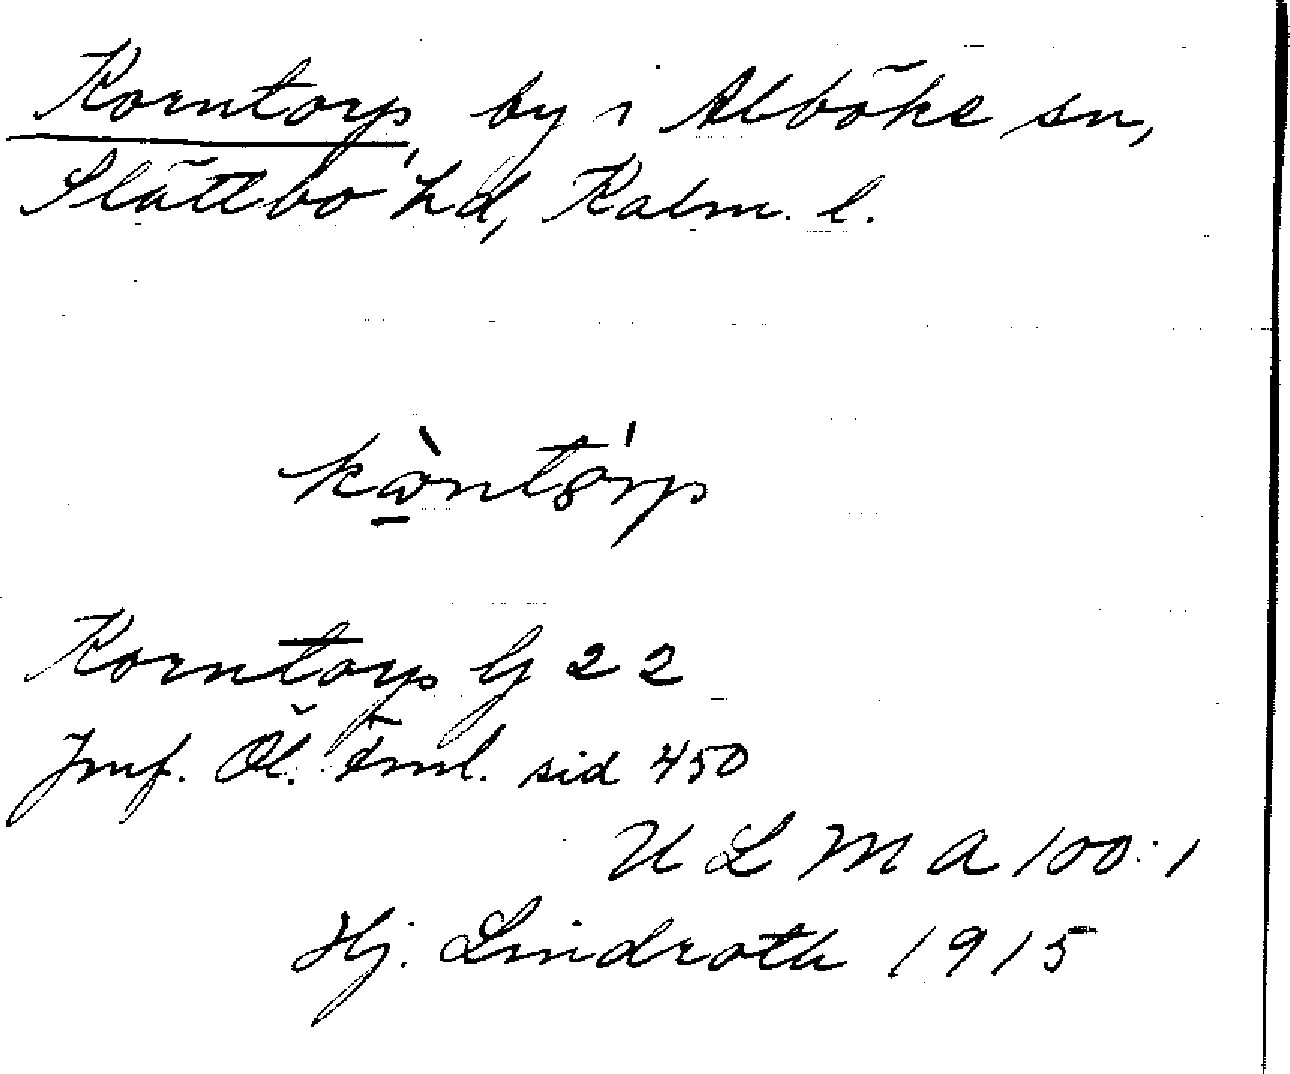 Korntorp, by i Alböke sn,
Slättbo hd, Kalm. l.
Korntorp G 22
Jmf. Öl. sid 450
U L M A 100:1
Hj. Lindroth 1915